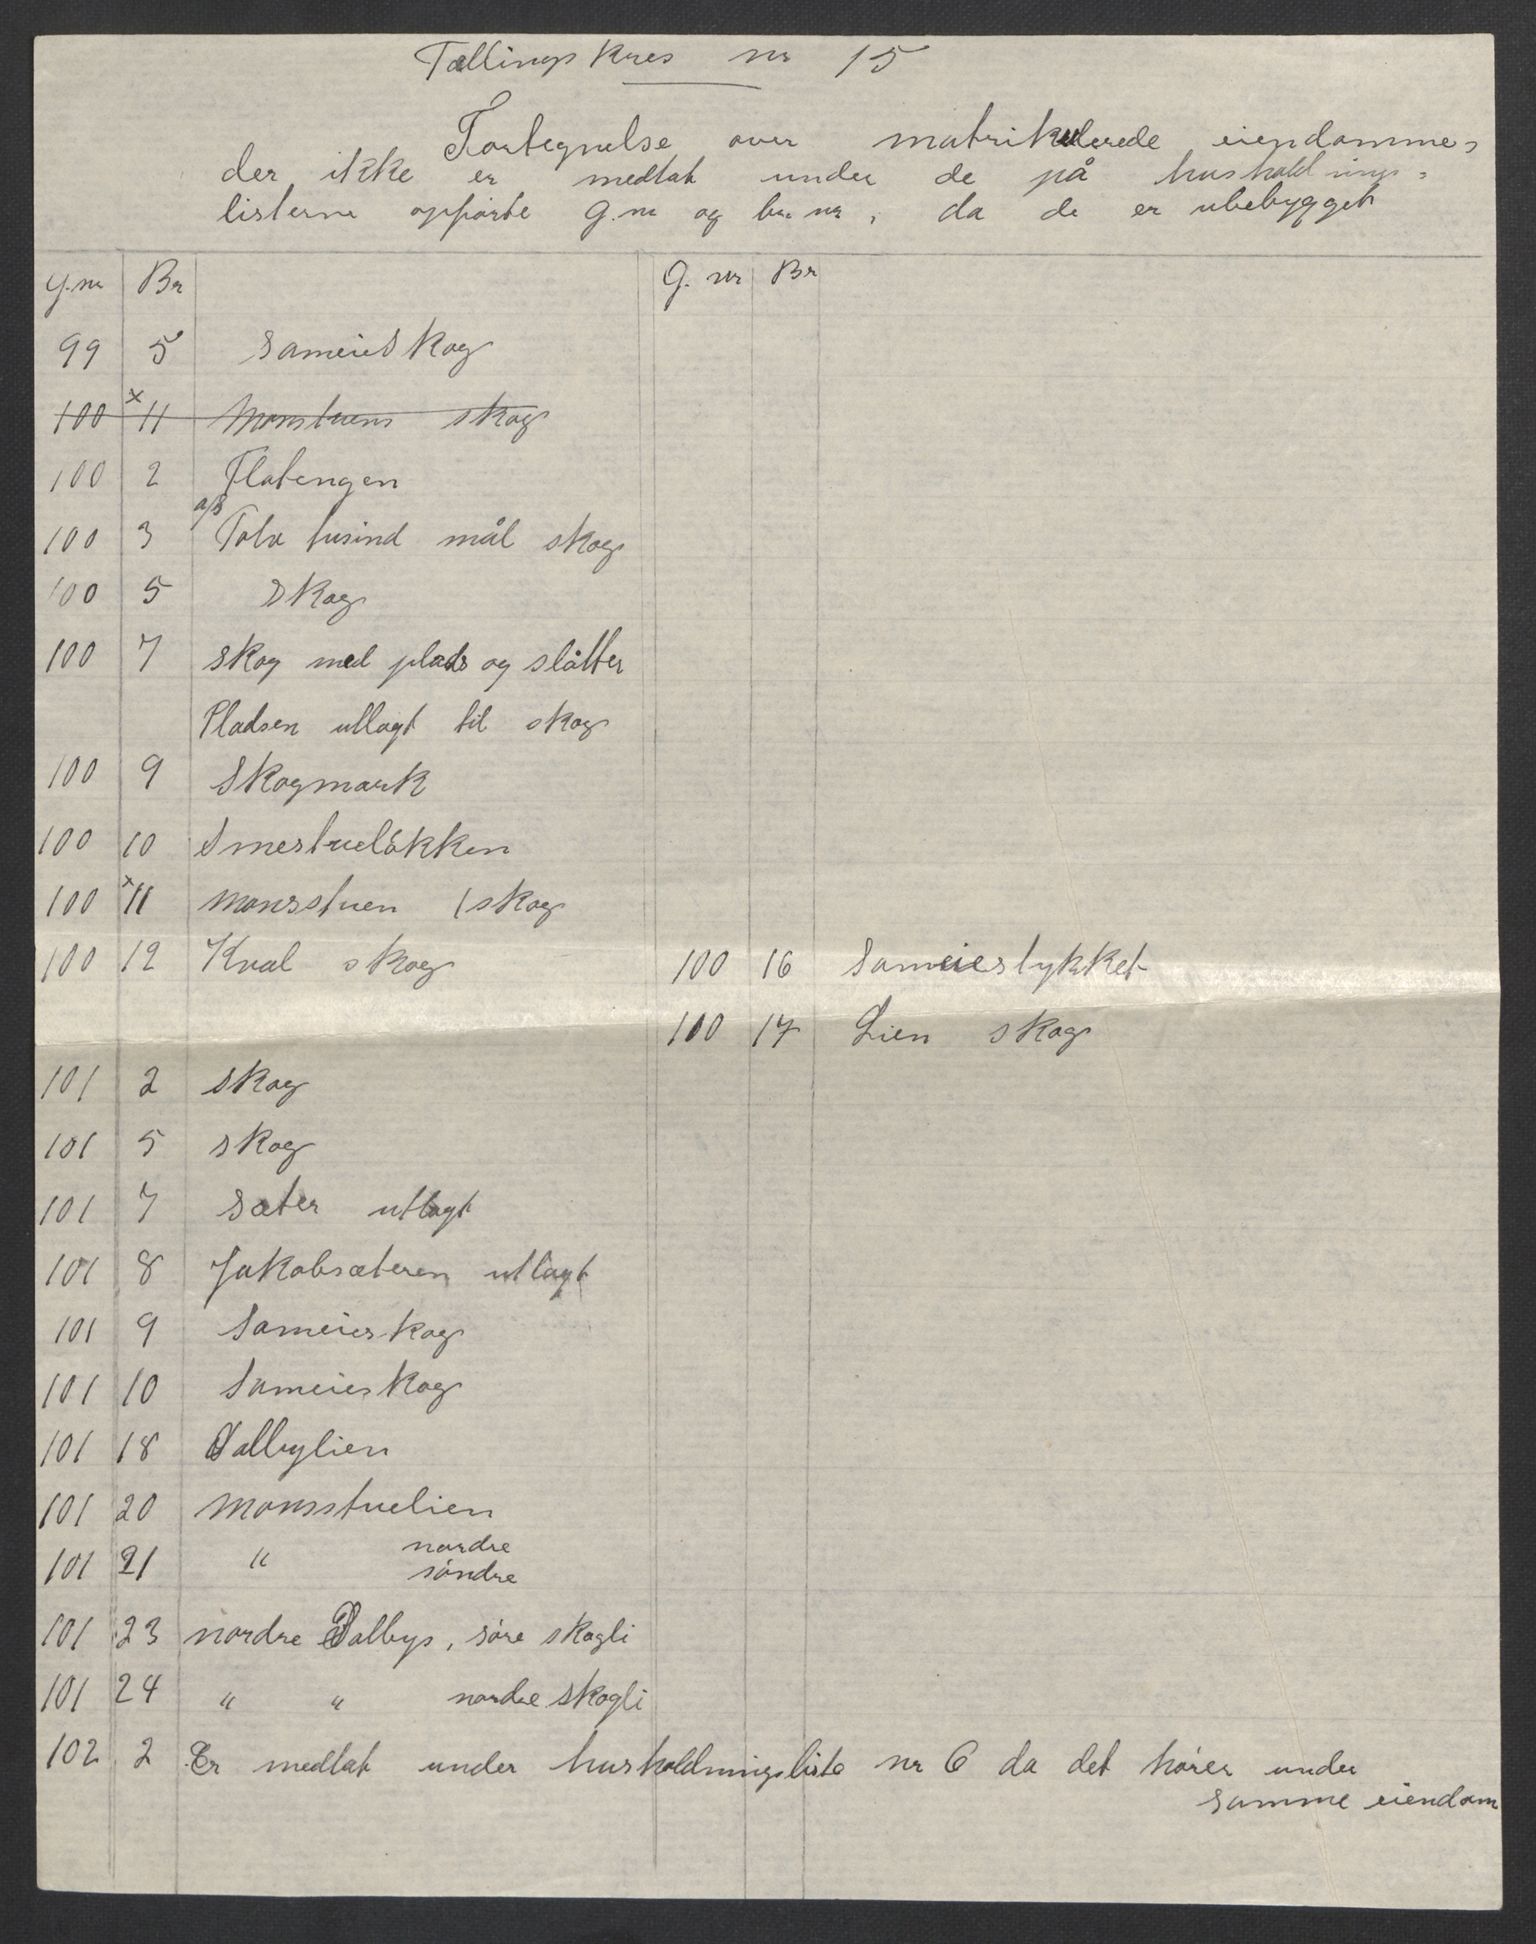 Tællingskres nr 15
Fortegnelse over matrikulerede eiendomme,
der ikke er medtat under de på husholdnings-
listerne opførte G.nr og br. nr, da de er ubebygget
G.nr Br
99 5 SameieSkog
100 x11 Monstuens skog
100 2 Flatengen
100 3 a/s Tolv tusind mål skog
100 5 Skog
100 7 Skog med plads og slåtter
Pladsen utlagt til skog
100 9 Skogmark
100 10 Smestueløkken
100 x11 Monsstuen / skog
100 12 Kval skog
101 2 Skog
101 5 skog
101 7 Sæter utlagt
101 8 Jakobsæteren utlagt
101 9 Sameieskog
101 10 Sameieskog
101 18 Dalbylien
101 20 Monsstuelien
101 21 " nordre
søndre
101 23 nordre Dalbys, søre skogli
101 24 " " nordre skogli
102 2 Er medtat under husholdningsliste nr 6 da det hører under
samme eiendom
G. nr Br
100 16 Sameiestykket
100 17 Lien skog